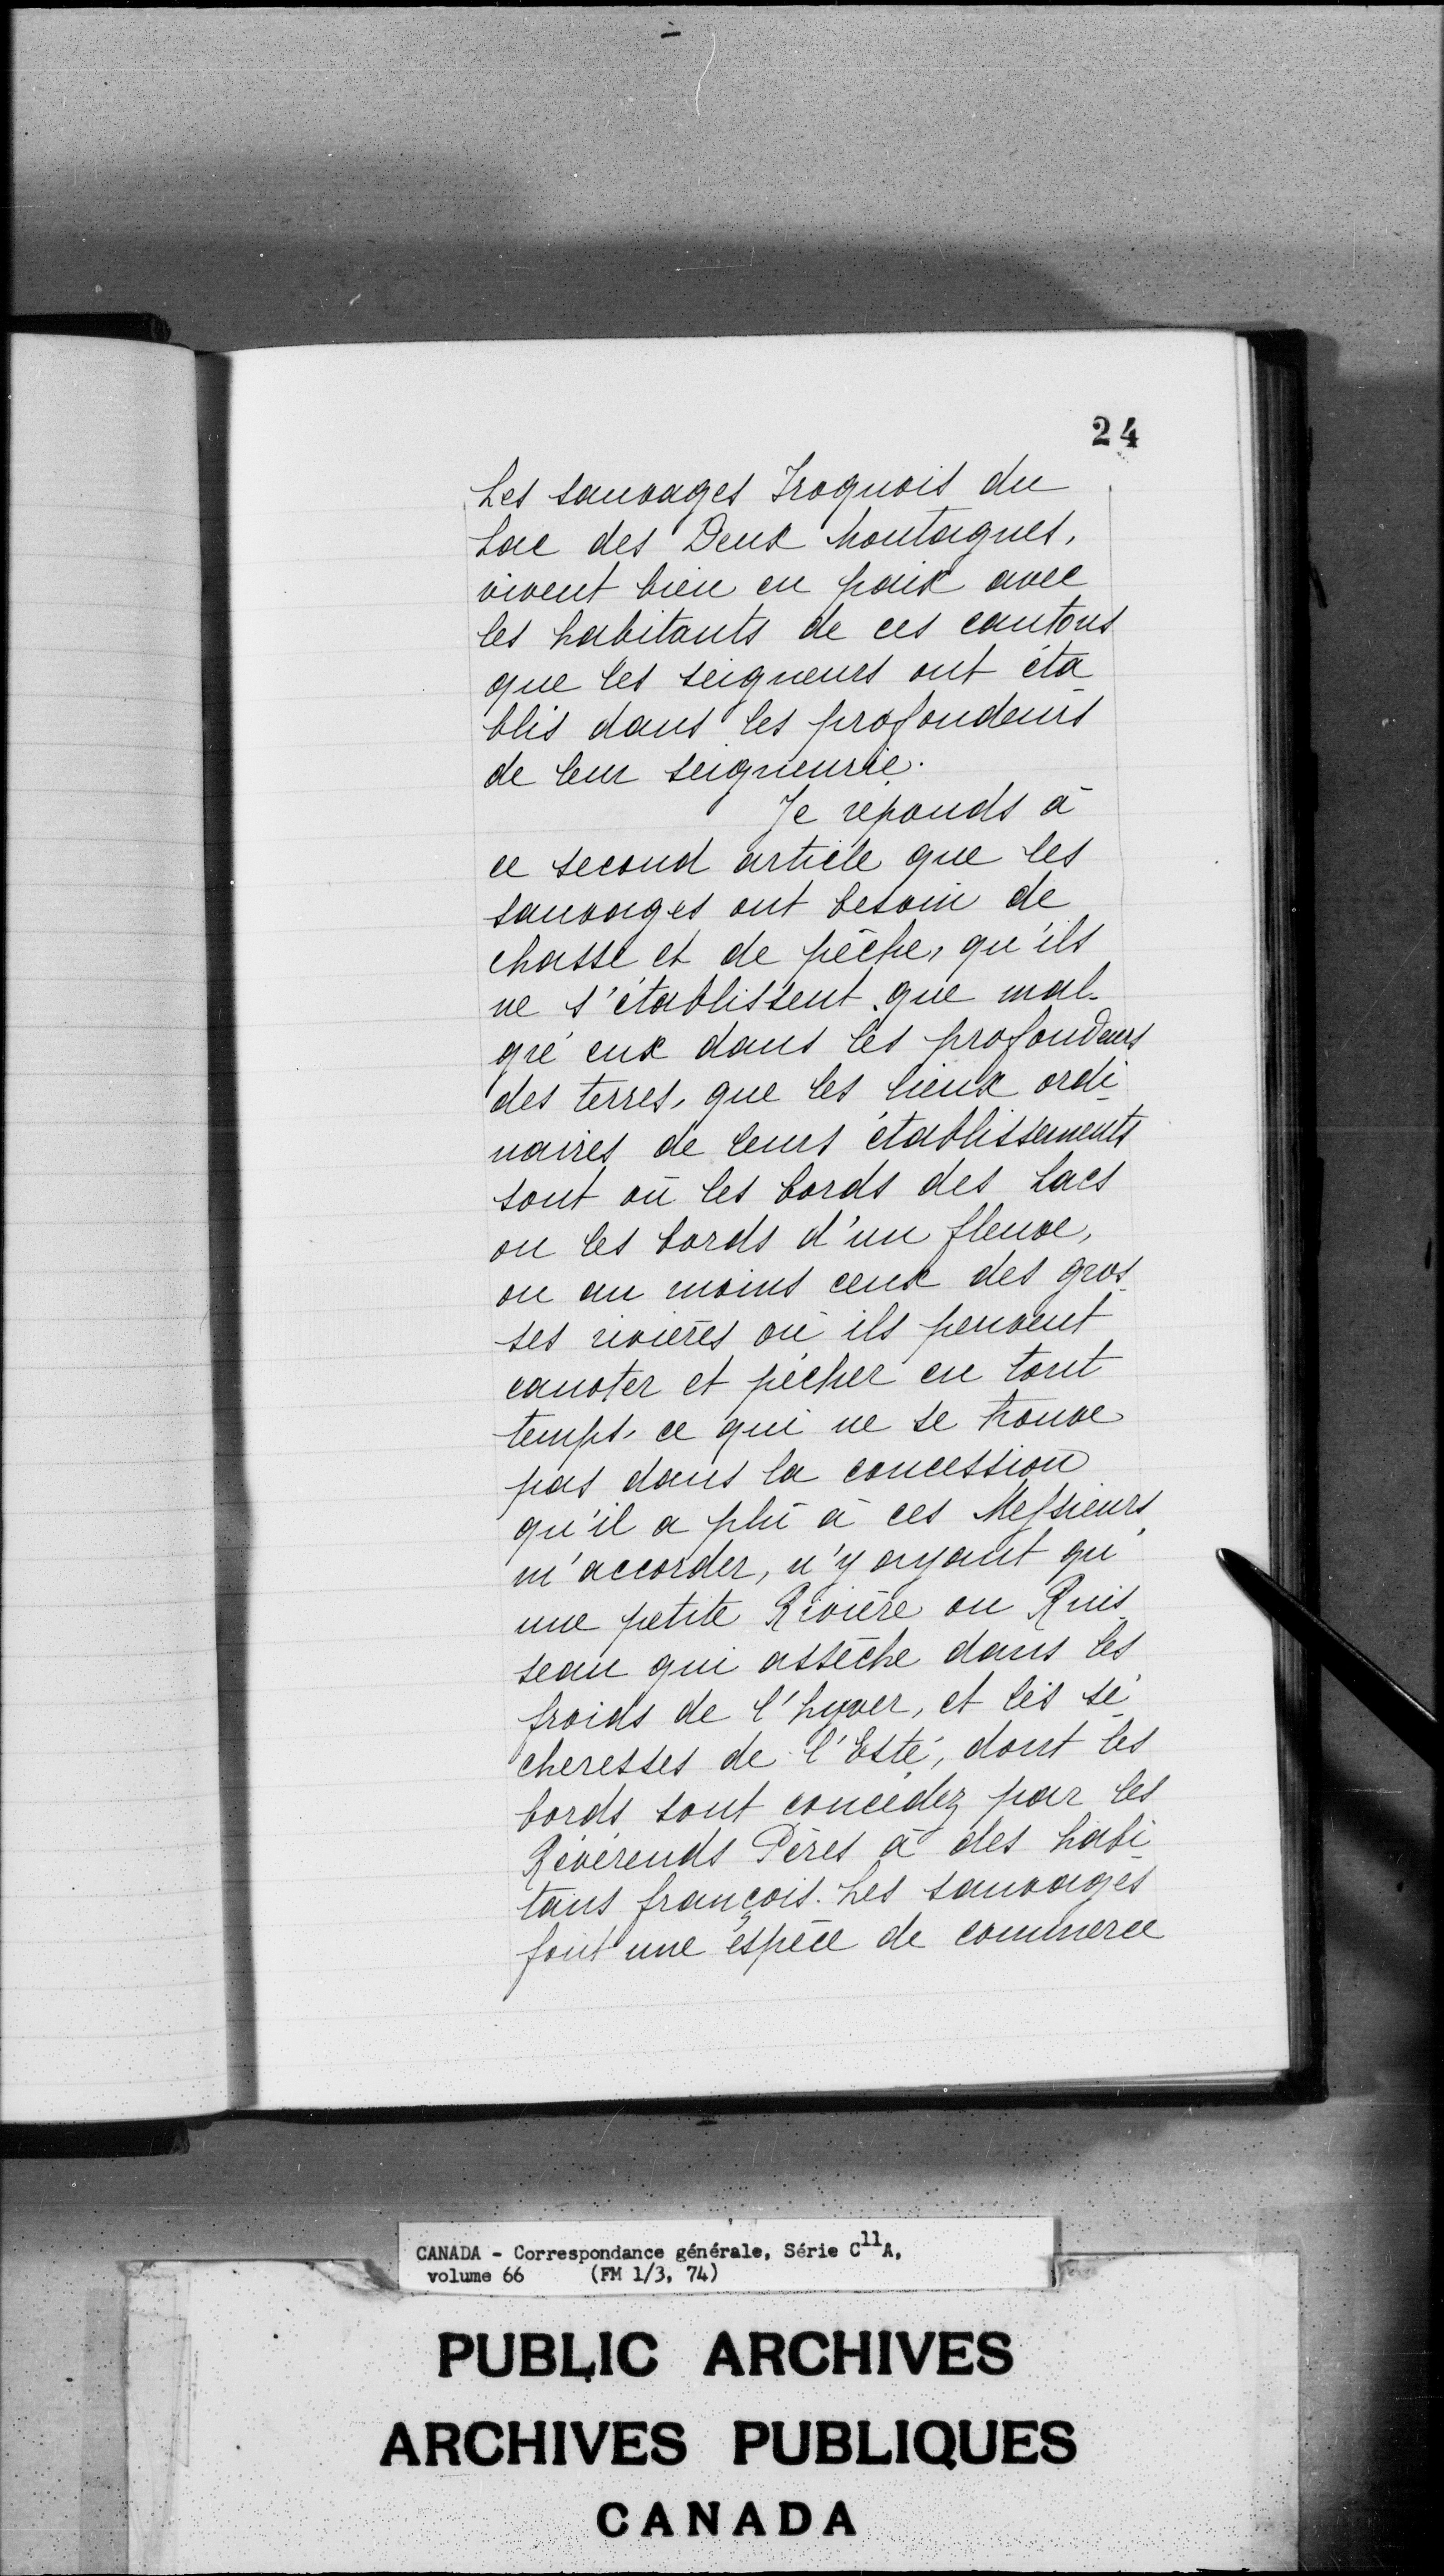 24
Les sauvages Iroquois du
Lac des Deux Montagnes,
vivent bien en paix avec
les habitants de ces cantons
que les seigneurs ont éta
blis dans les profondeurs
de leur seigneurie.
Je réponds à
ce second article que les
sauvages ont besoin de
chasse et de pêche, qu'ils
ne s'établissent que mal-
gré eux dans les profondeurs
des terres, que les lieux ordi-
naires de leurs établissements
sont où les bords des Lacs
ou les bords d'un fleuve,
ou au moins ceux des gros-
ses rivières où ils peuvent
canoter et pêcher en tout
temps, ce qui ne se trouve
pas dans la concession
qu'il a plû à ces Messieurs
m'accorder, n'y ayant qu'
une petite Rivière ou Ruis-
seau qui assèche dans les
froids de l'hyver, et les sé-
cheresses de l'Esté, dont les
bords sont concédez par les
Révérends Pères à des habi-
tans françois. Les sauvages
font une espèce de commerce
CANADA - Correspondance générale, Série C11A,
volume 66 (FM 1/3, 74)
PUBLIC ARCHIVES
ARCHIVES PUBLIQUES
CANADA